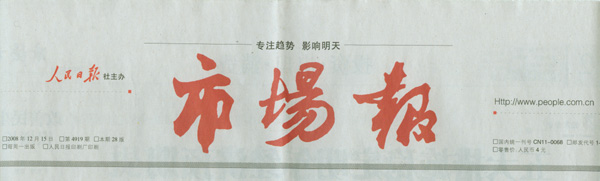 专注趋势 影响明天
人民日报 社主办
市場報
Http://www.people.com.cn
□2008年12月15日 □第4019期 □本期28版
□每周一出版 □人民日报印刷厂印刷
□国内统一刊号 CN11-0068 □邮发代号 1-
□零售价 人民币4元